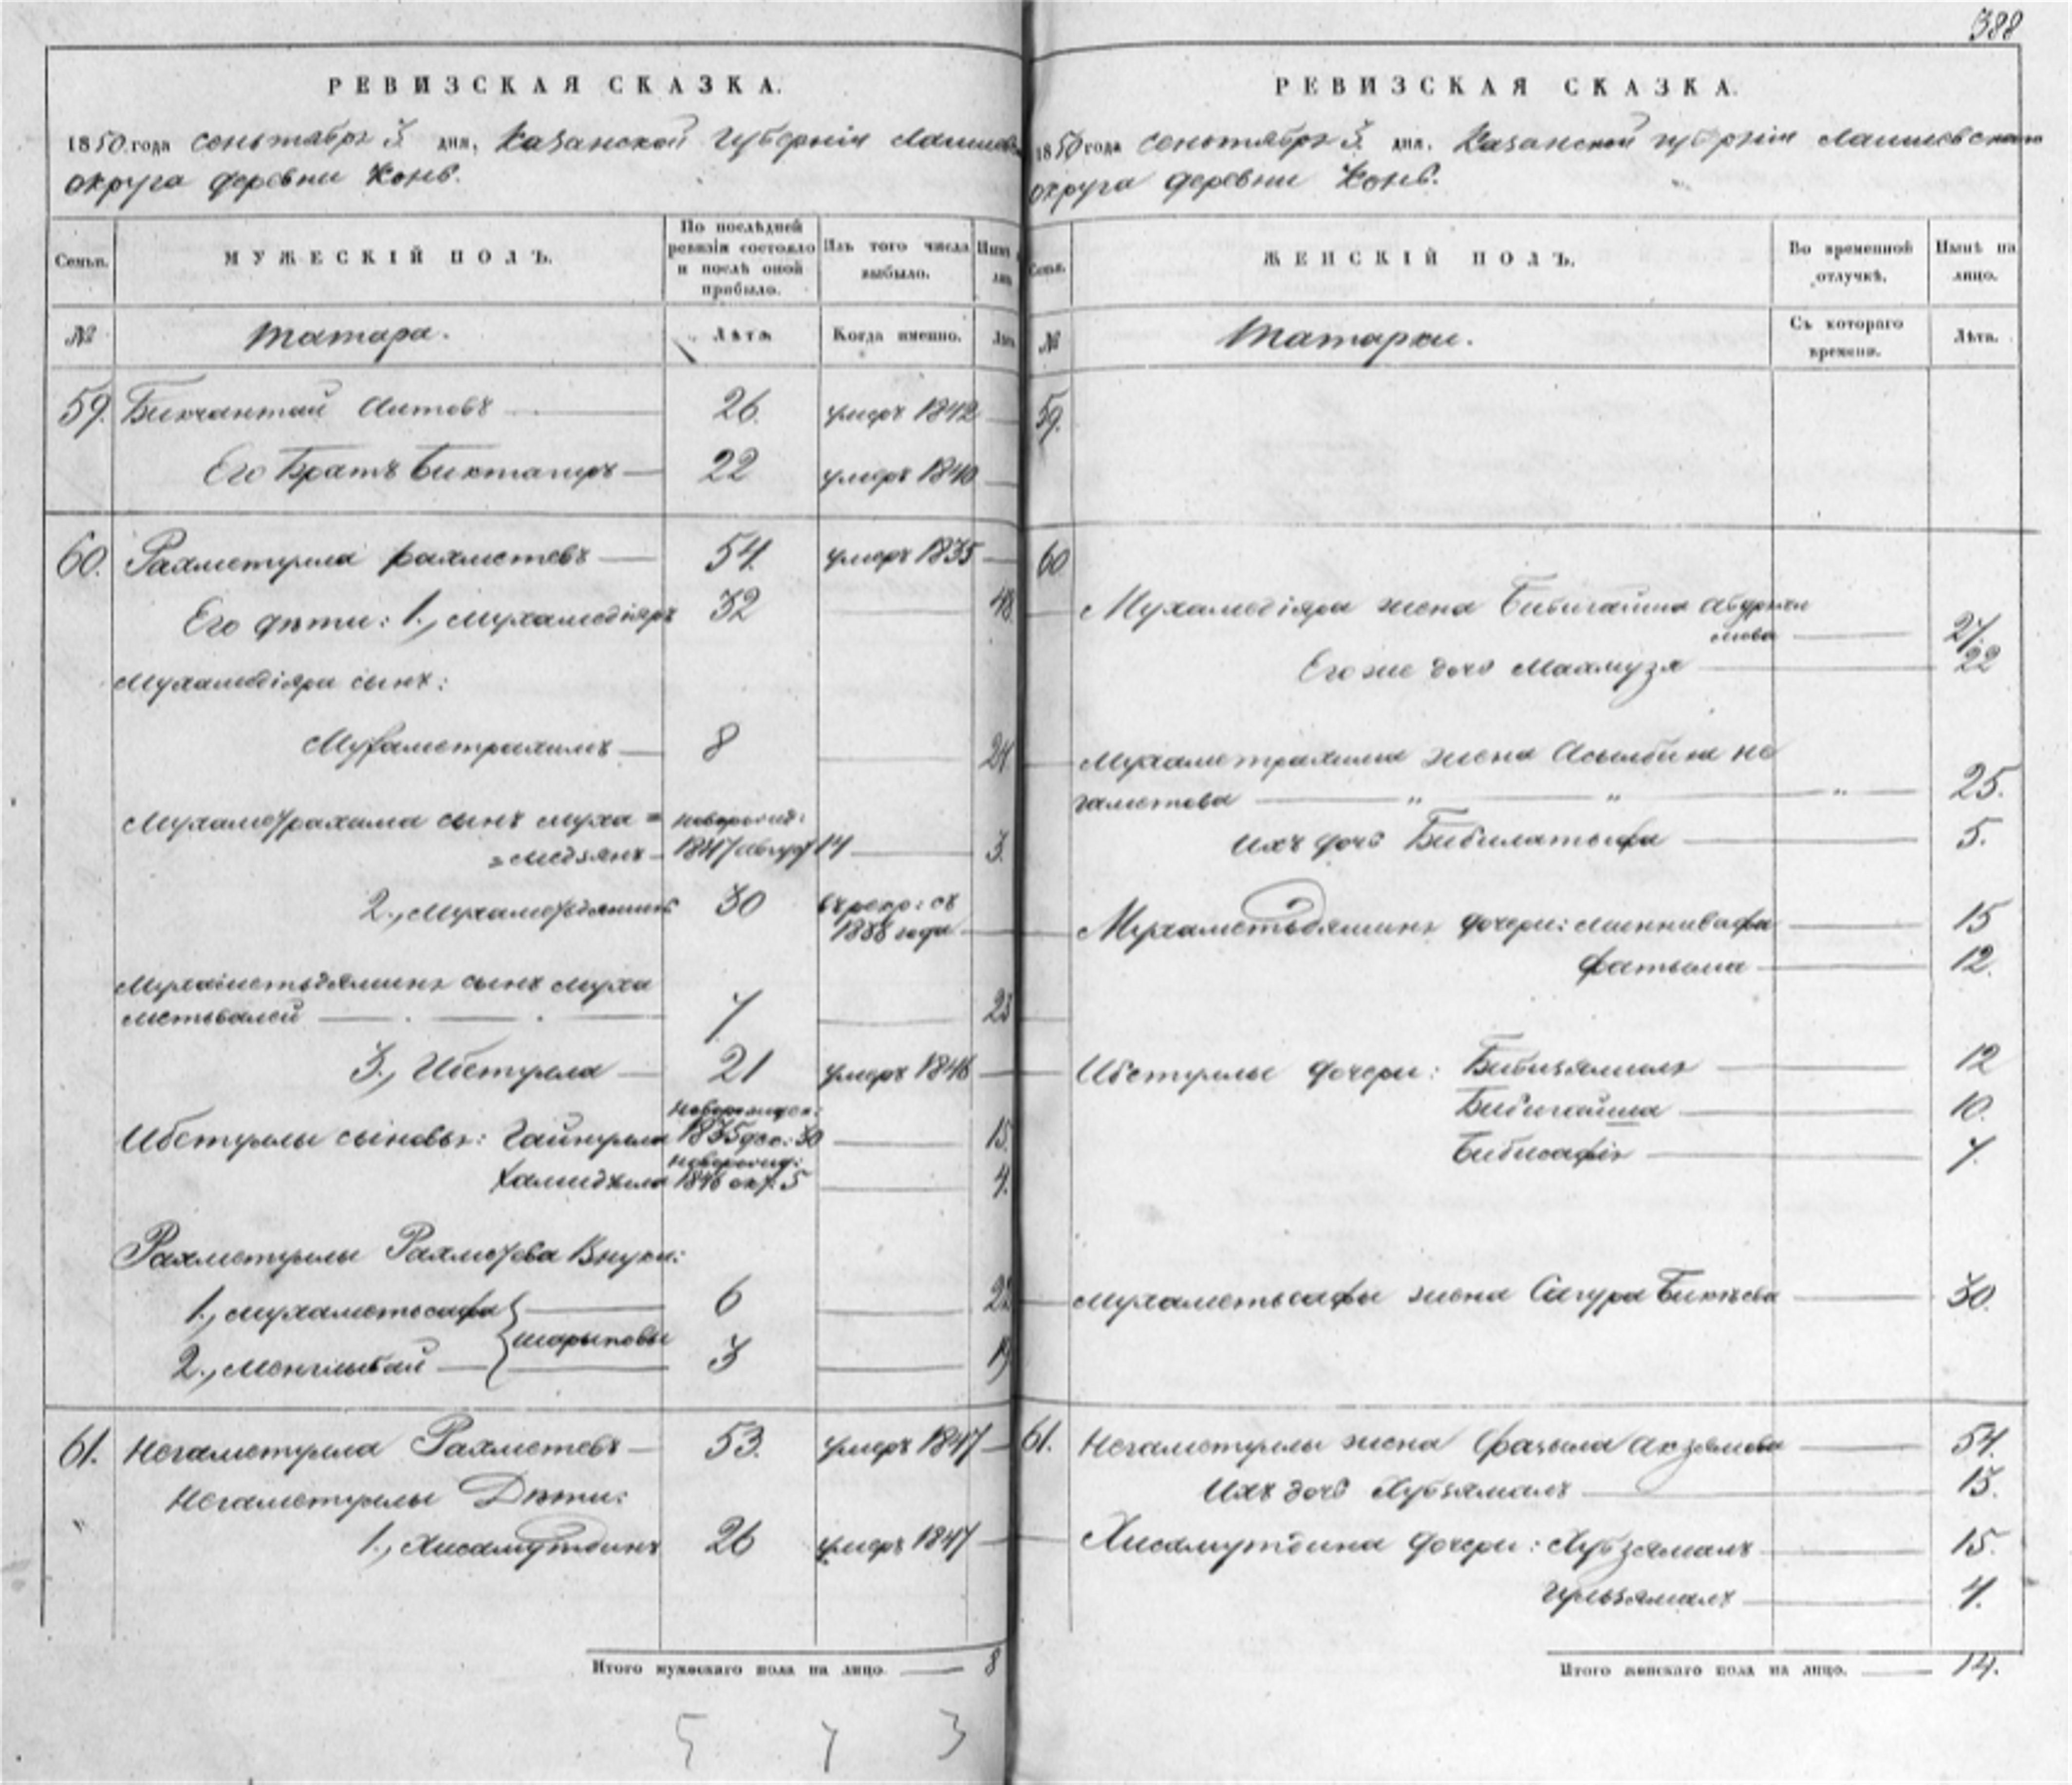 388
РЕВИЗСКАЯ СКАЗКА.
1850 года сентября 3 дня, Казанской губернии
округа деревни Конь.
Семьи.
МУЖЕСКІЙ ПОЛЪ.
По послѣдней ревизіи состояло и послѣ оной прибыло.
Изъ того числа выбыло.
№
Татара.
Лѣта.
Когда именно.
59. Бикчантай Аитовъ 26 умеръ 1842
Его братъ Биктагиръ 22 умеръ 1840
60. Рахметулла Рахметевъ 54. умеръ 1835
Его дѣти: 1., Мухамедіяръ 32 48.
Мухамедіяра сынъ:
Мухаметрахимъ 8 24
Мухаметрахима сынъ Муха=
=медзянъ 1847 август 14 3.
2., 30 съ
1838 года
сынъ Муха
метьвалей 7 23
3., Ибетулла 21 умеръ 1846
Ибетуллы сыновья: Гайнулла 1835 дек: 30 15.
1846 окт. 5 4.
Рахметуллы Рахметева внуки:
1., Мухаметьсафа 6 22
Шарыповы
2., Менглыбай 3 19
61. Негаметулла Рахметевъ 53. умеръ 1847
Негаметуллы Дѣти:
1., Хисамутдинъ 26 умеръ 1847
Итого мужескаго пола на лицо. 8
5 7 3
РЕВИЗСКАЯ СКАЗКА.
1850 года сентября 3 дня, Казанской губерніи Лаишевскаго
округа деревни Конь.
Семьи.
ЖЕНСКІЙ ПОЛЪ.
Во временной отлучкѣ.
Нынѣ на лицо.
№
Татарки.
Съ котораго времени.
Лѣта.
59.
60
Мухамедіяра жена Бибигайша
27.
Его же дочь Махмузя 22
Мухаметрахима жена Асылбика Не
гаметова " " " 25.
Ихъ дочь Бибилатыфа 5.
дочери: Миннивафа 15
Фатыма 12.
Ибетуллы дочери: Бибизямалъ 12
Бибигайша 10.
Бибисафія 7.
Мухаметьсафы жена Сагура 30.
61. Негаметуллы жена Фазыла Акзямова 54.
Ихъ дочь Хубзямалъ 15.
Хисамутдина дочери: Хубзямалъ 15.
Гульзямалъ 4.
Итого женскаго пола на лицо. 14.